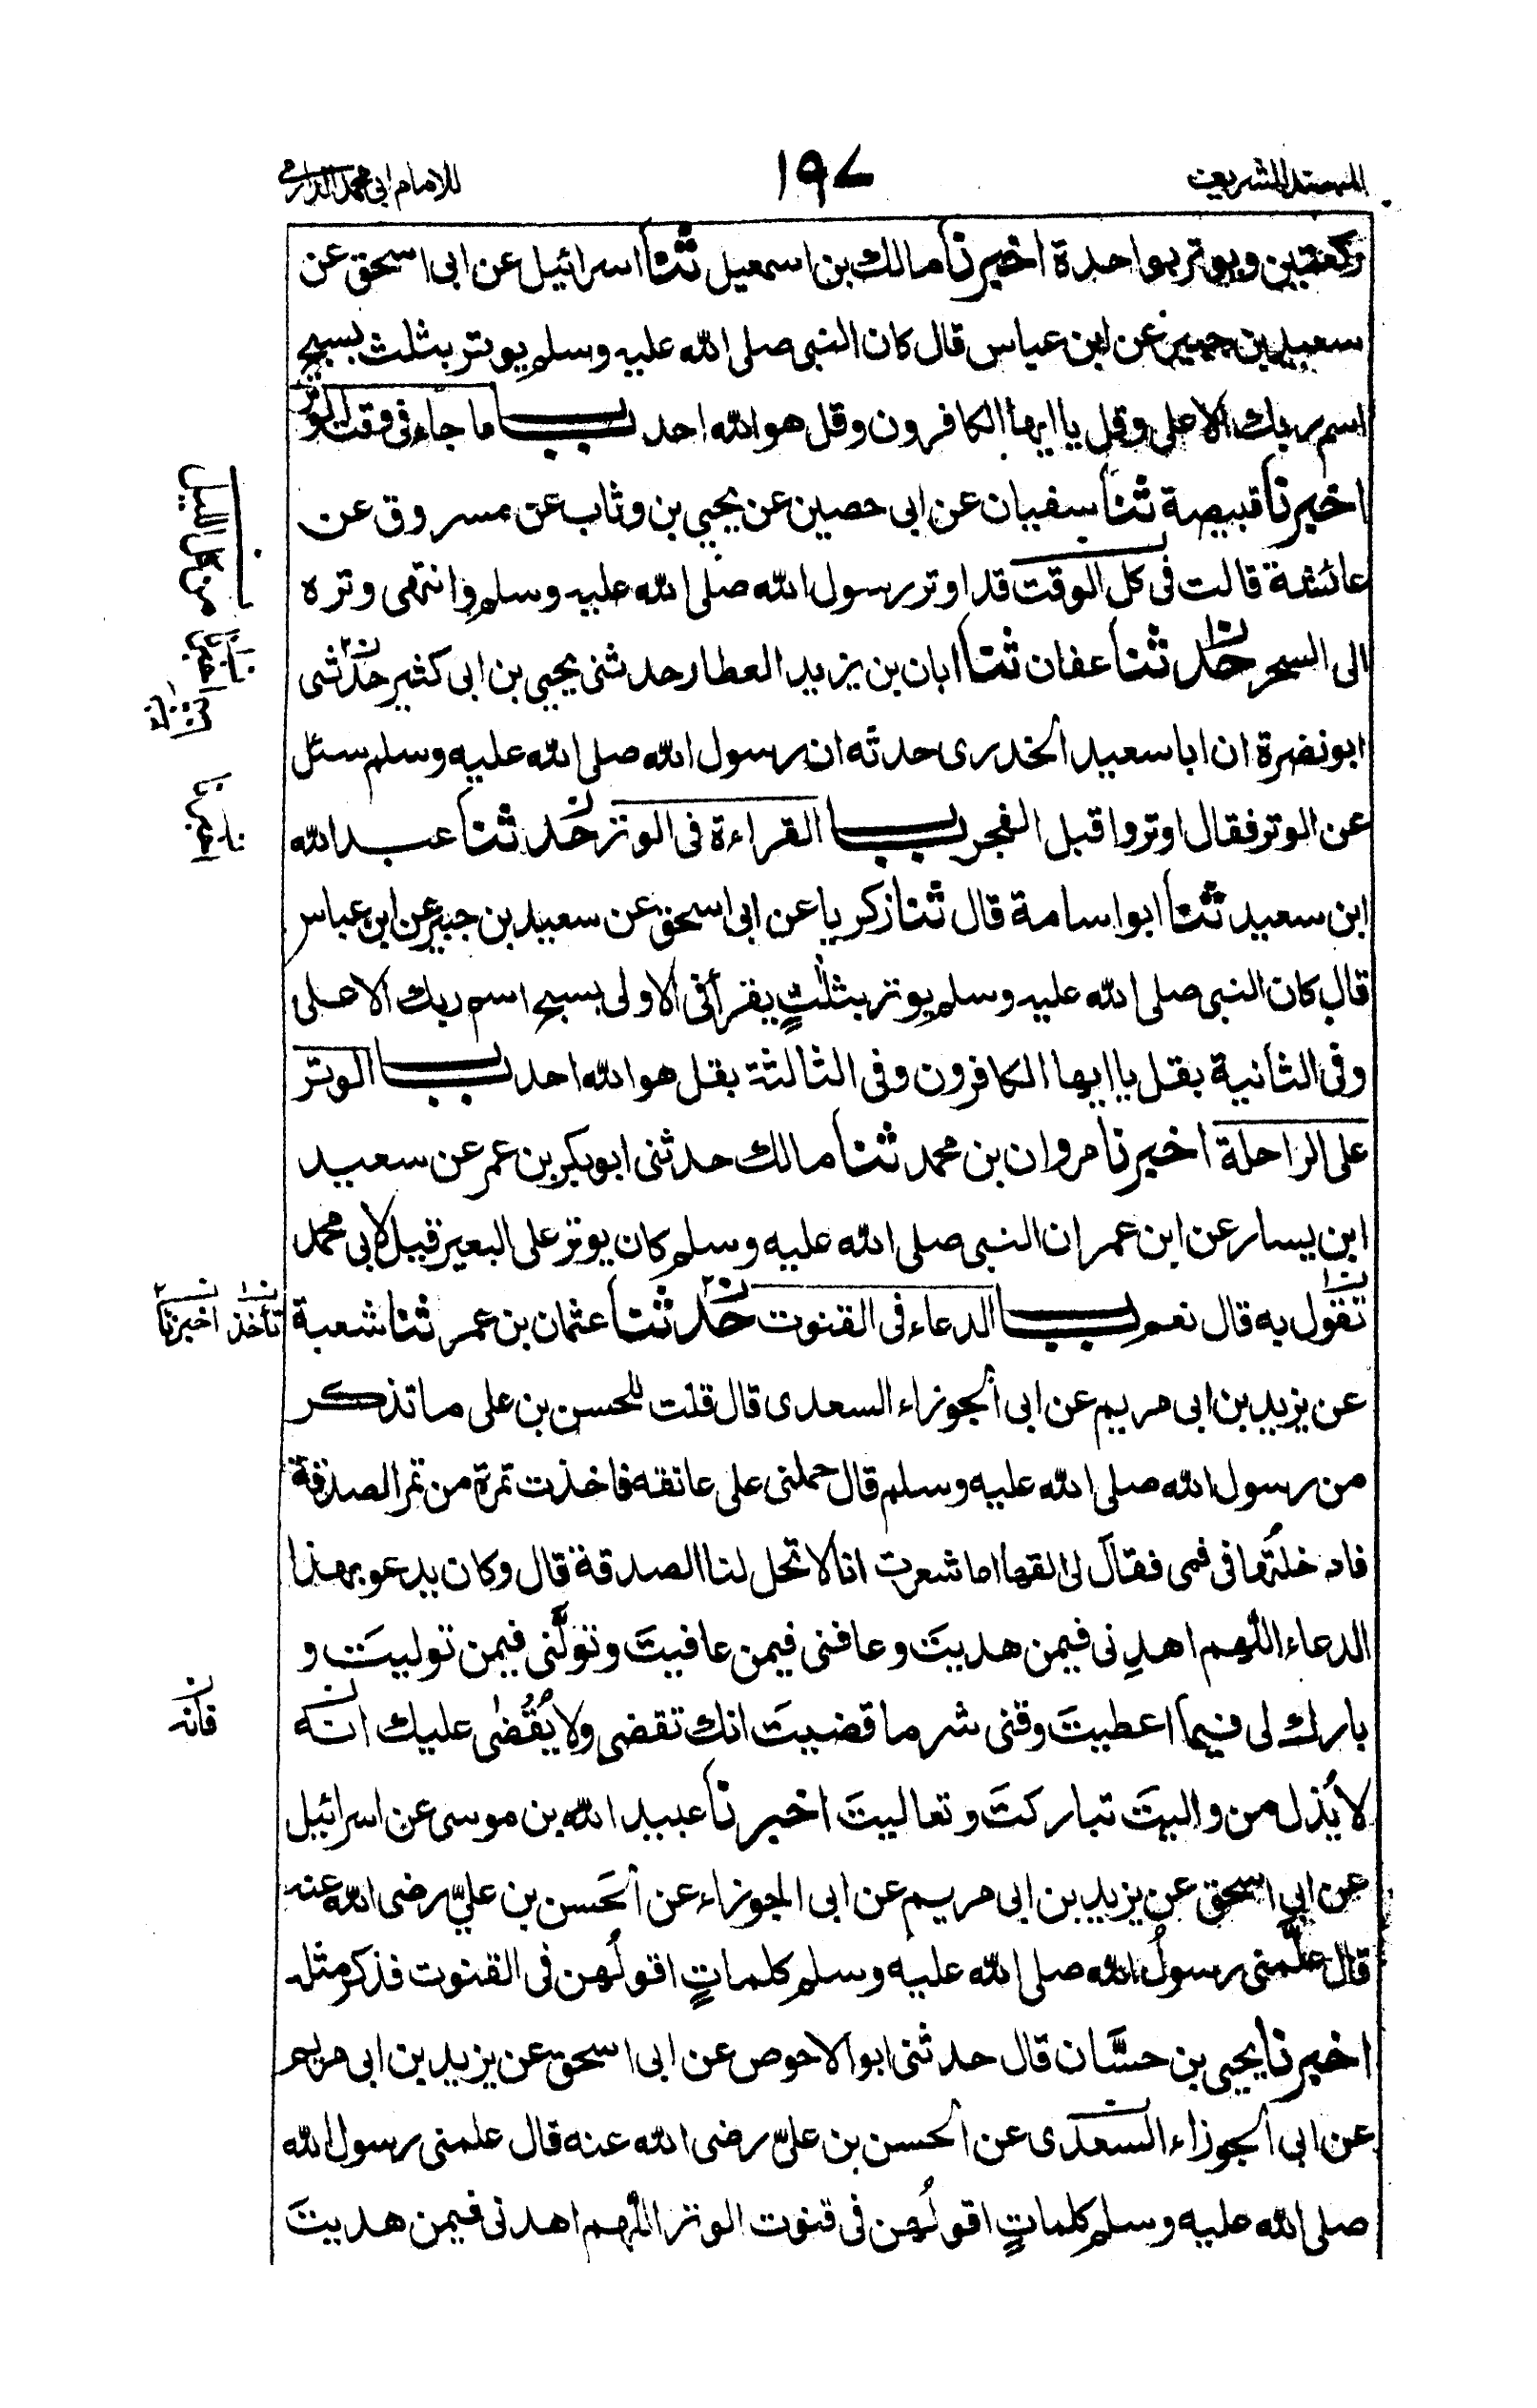 المسند الشريف
١٩٧
للامام ابى محمد الدارمى
ركعتين ويوتر بواحدة اخبرنا مالك بن اسمعيل ثنا اسرائيل عن ابى اسحق عن
سعيد بن جبير عن ابن عباس قال كان النبى صلى الله عليه وسلم يوتر بثلث بسبح
اسم ربك الاعلى وقل يا ايها الكافرون وقل هو الله احد باب ما جاء فى وقت الوتر
اخبرنا قبيصة ثنا سفيان عن ابى حصين عن يحيى بن وثاب عن مسروق عن
عائشة قالت فى كل الوقت قد اوتر رسول الله صلى الله عليه وسلم وانتهى وتره
الى السحر حدثنا عفان ثنا ابان بن يزيد العطار حدثنى يحيى بن ابى كثير حدثنى
ابو نضرة ان ابا سعيد الخدرى حدثه ان رسول الله صلى الله عليه وسلم سئل
عن الوتر فقال اوتروا قبل الفجر باب القراءة فى الوتر حدثنا عبد الله
ابن سعيد ثنا ابو اسامة قال ثنا زكريا عن ابى اسحق عن سعيد بن جبير عن ابن عباس
قال كان النبى صلى الله عليه وسلم يوتر بثلثٍ يقرأ فى الاولى بسبح اسم ربك الاعلى
وفى الثانية بقل يا ايها الكافرون وفى الثالثة بقل هو الله احد باب الوتر
على الراحلة اخبرنا مروان بن محمد ثنا مالك حدثنى ابو بكر بن عمر عن سعيد
ابن يسار عن ابن عمر ان النبى صلى الله عليه وسلم كان يوتر على البعير قيل لابى محمد
تقول به قال نعم باب الدعاء فى القنوت حدثنا عثمان بن عمر ثنا شعبة
عن يزيد بن ابى مريم عن ابى الجوزاء السعدى قال قلت للحسن بن على ما تذكر
من رسول الله صلى الله عليه وسلم قال حملنى على عاتقه فاخذت تمرة من تمر الصدقة
فادخلتُها فى فمى فقال لى القها اما شعرت انا لا تحل لنا الصدقة قال وكان يدعو بهذا
الدعاء اللهم اهدِنى فيمن هديتَ وعافنى فيمن عافيتَ وتولَّنى فيمن توليتَ و
بارك لى فيما اعطيتَ وقنى شر ما قضيتَ انك تقضى ولا يُقْضٰى عليك انه
لا يُذل من واليتَ تباركتَ وتعاليتَ اخبرنا عبيد الله بن موسى عن اسرائيل
عن ابى اسحق عن يزيد بن ابى مريم عن ابى الجوزاء عن الحَسن بن عليّ رضى الله عنه
قال علَّمنى رسولُ الله صلى الله عليه وسلم كلماتٍ اقولُهن فى القنوت فذكر مثله
اخبرنا يحيى بن حسَّان قال حدثنى ابو الاحوص عن ابى اسحق عن يزيد بن ابى مريم
عن ابى الجوزاء السعدى عن الحسن بن علىّ رضى الله عنه قال علمنى رسول الله
صلى الله عليه وسلم كلماتٍ اقولُهن فى قنوت الوتر اللهم اهدنى فيمن هديتَ
من كل الليل
تأخذ
اخبرنا
فانه